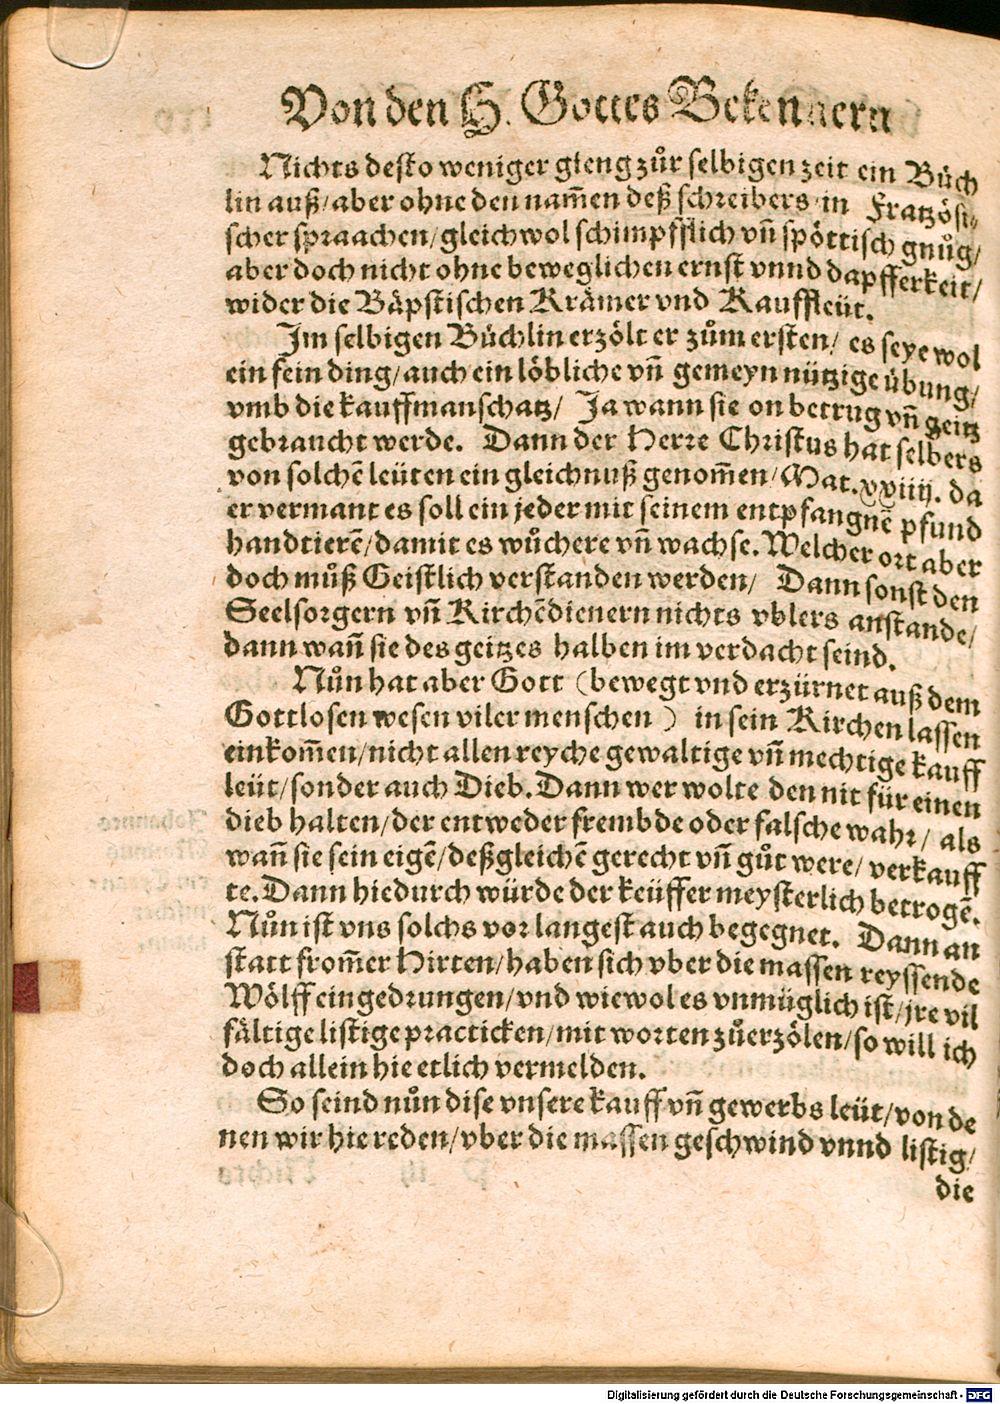 Von den H. Gottes Bekennern
Nichts desto weniger gieng zůr selbigen zeit ein Bůch
lin auß/aber ohne den nam̃en deß schreibers/in Fratzösi-
scher spraachen/gleichwol schimpfflich vñ spöttisch gnůg/
aber doch nicht ohne beweglichen ernst vnnd dapfferkeit/
wider die Bäpstischen Krämer vnd Kauffleüt.
Im selbigen Büchlin erzölt er zům ersten/ es seye wol
ein fein ding/auch ein löbliche vñ gemeyn nützige übung/
vmb die kauffmanschatz/ Ja wann sie on betrug vñ geitz
gebraucht werde. Dann der Herre Christus hat selbers
von solchẽ leüten ein gleichnuß genom̃en/Mat.xxiiij. da
er vermant es soll ein jeder mit seinem entpfangnẽ pfund
handtierẽ/damit es wůchere vñ wachse. Welcher ort aber
doch můß Geistlich verstanden werden/ Dann sonst den
Seelsorgern vñ Kirchẽdienern nichts vblers anstande/
dann wañ sie des geitzes halben im verdacht seind.
Nůn hat aber Gott (bewegt vnd erzürnet auß dem
Gottlosen wesen viler menschen) in sein Kirchen lassen
einkom̃en/nicht allen reyche gewaltige vñ mechtige kauff
leüt/sonder auch Dieb. Dann wer wolte den nit für einen
dieb halten/der entweder frembde oder falsche wahr/ als
wañ sie sein eigẽ/deßgleichẽ gerecht vñ gůt were/ verkauff
te. Dann hiedurch würde der keüffer meysterlich betrogẽ.
Nůn ist vns solchs vor langest auch begegnet. Dann an
statt from̃er Hirten/haben sich vber die massen reyssende
Wölff eingedrungen/vnd wiewol es vnmüglich ist/jre vil
fältige listige practicken/mit worten zůerzölen/so will ich
doch allein hie etlich vermelden.
So seind nůn dise vnsere kauff vñ gewerbs leüt/von de
nen wir hie reden/vber die massen geschwind vnnd listig/
die
Digitalisierung gefördert durch die Deutsche Forschungsgemeinschaft - DFG